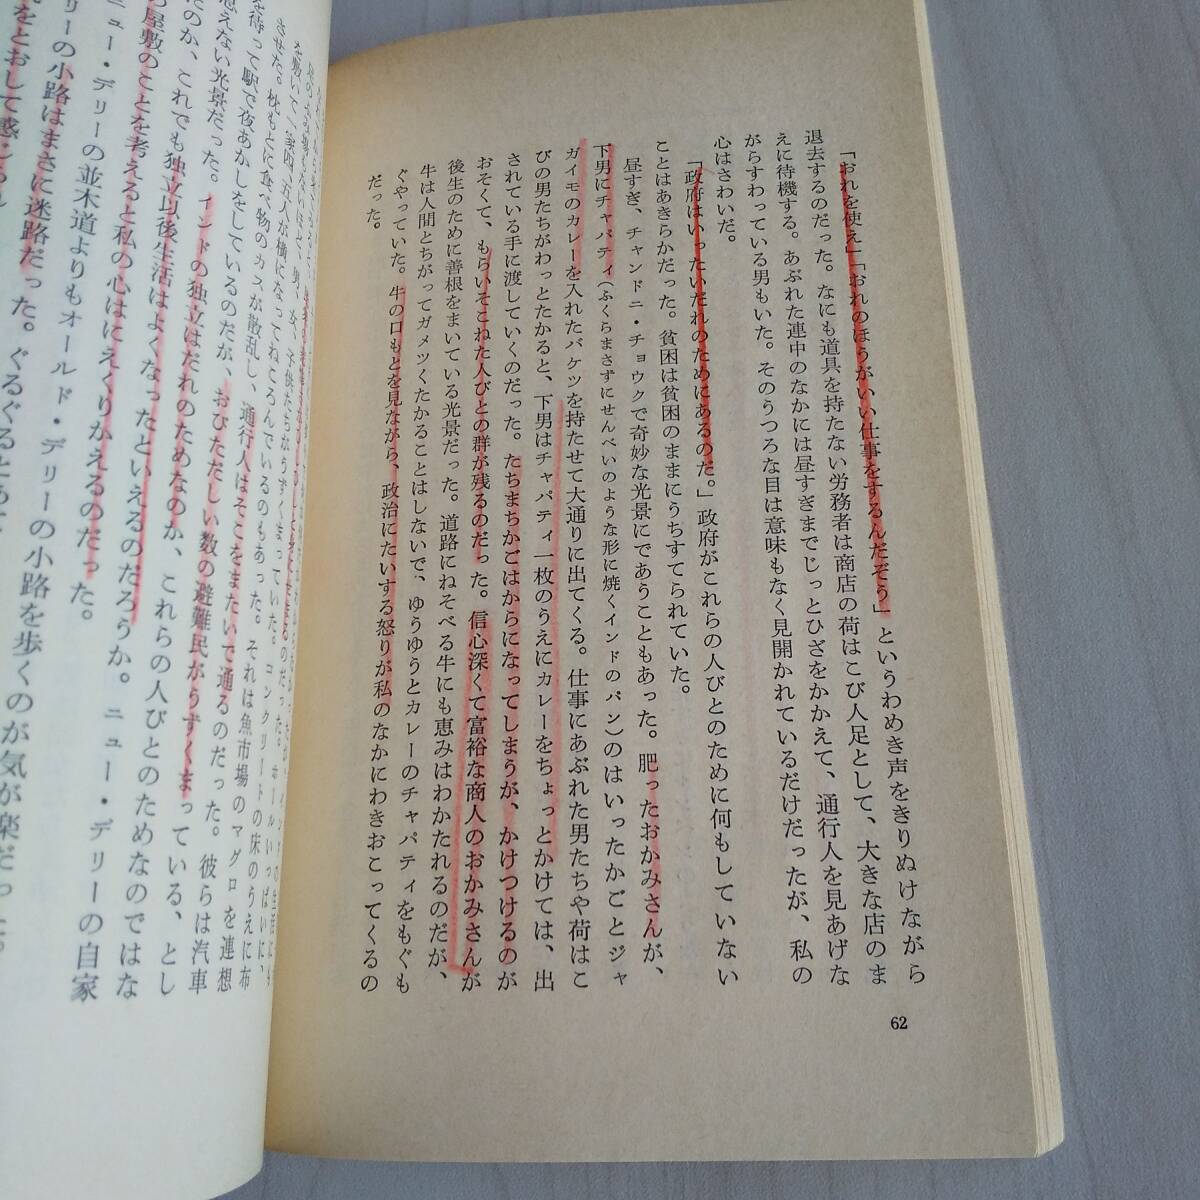 「おれを使え」「おれのほうがいい仕事をするんだぞう」というわめき声をきりぬけながら
退去するのだった。なにも道具を持たない労務者は商店の荷はこび人足として、大きな店のま
えに待機する。あぶれた連中のなかには昼すぎまでじっとひざをかかえて、通行人を見あげな
がらすわっている男もいた。そのうつろな目は意味もなく見開かれているだけだったが、私の
心はさわいだ。
「政府はいったいだれのためにあるのだ。」政府がこれらの人びとのために何もしていない
ことはあきらかだった。貧困は貧困のままにうちすてられていた。
昼すぎ、チャンドニ・チョウクで奇妙な光景にであうこともあった。肥ったおかみさんが、
下男にチャパティ（ふくらまさずにせんべいのような形に焼くインドのパン）のはいったかごとジャ
ガイモのカレーを入れたバケツを持たせて大通りに出てくる。仕事にあぶれた男たちや荷はこ
びの男たちがわっとたかると、下男はチャパティ一枚のうえにカレーをちょっとかけては、出
されている手に渡していくのだった。たちまちかごはからになってしまうが、かけつけるのが
おそくて、もらいそこねた人びとの群が残るのだった。信心深くて富裕な商人のおかみさんが
後生のために善根をまいている光景だった。道路にねそべる牛にも恵みはわかたれるのだが、
牛は人間とちがってガメツくたかることはしないで、ゆうゆうとカレーのチャパティをもぐも
ぐやっていた。牛の口もとを見ながら、政治にたいする怒りが私のなかにわきおこってくるの
だった。
62
を敷いて一家四、五人が横になってねころんでいるのもあった。コンクリートの床のうえに布
させた。枕もとに食べ物のカスが散乱し、通行人はそこをまたいで通るのだった。それは魚市場のマグロを連想
を待って駅で夜あかしをしているのだが、おびただしい数の避難民がうずくまっている、とし
思えない光景だった。インドの独立はだれのためなのか、これらの人びとのためなのではな
のか、これでも独立以後生活はよくなったといえるのだろうか。ニュー・デリーの自家
屋敷のことを考えると私の心はにえくりかえるのだった。
ニュー・デリーの並木道よりもオールド・デリーの小路を歩くのが気が楽だった。
リーの小路はまさに迷路だった。ぐるぐると
をとおして感じ